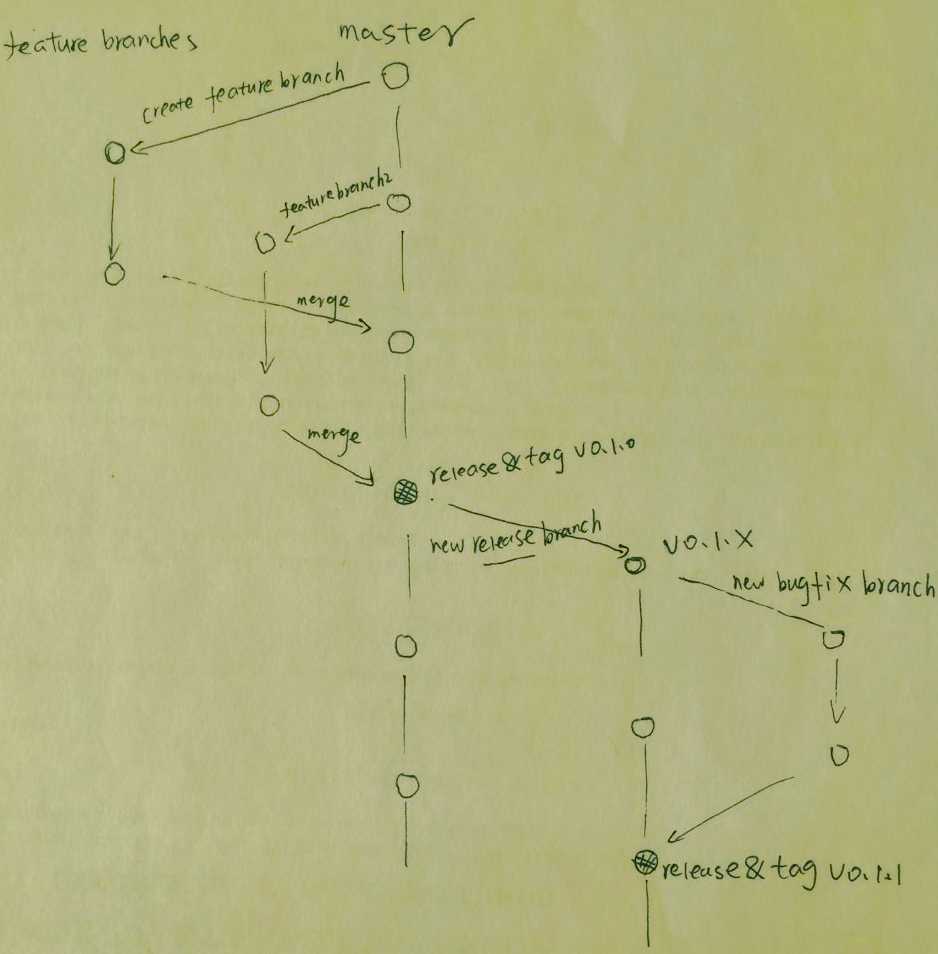 feature branches
master
create feature branch
featurebranch2
merge
merge
release & tag v0.1.0
new release branch
v0.1.X
new bugfix branch
release & tag v0.1.1